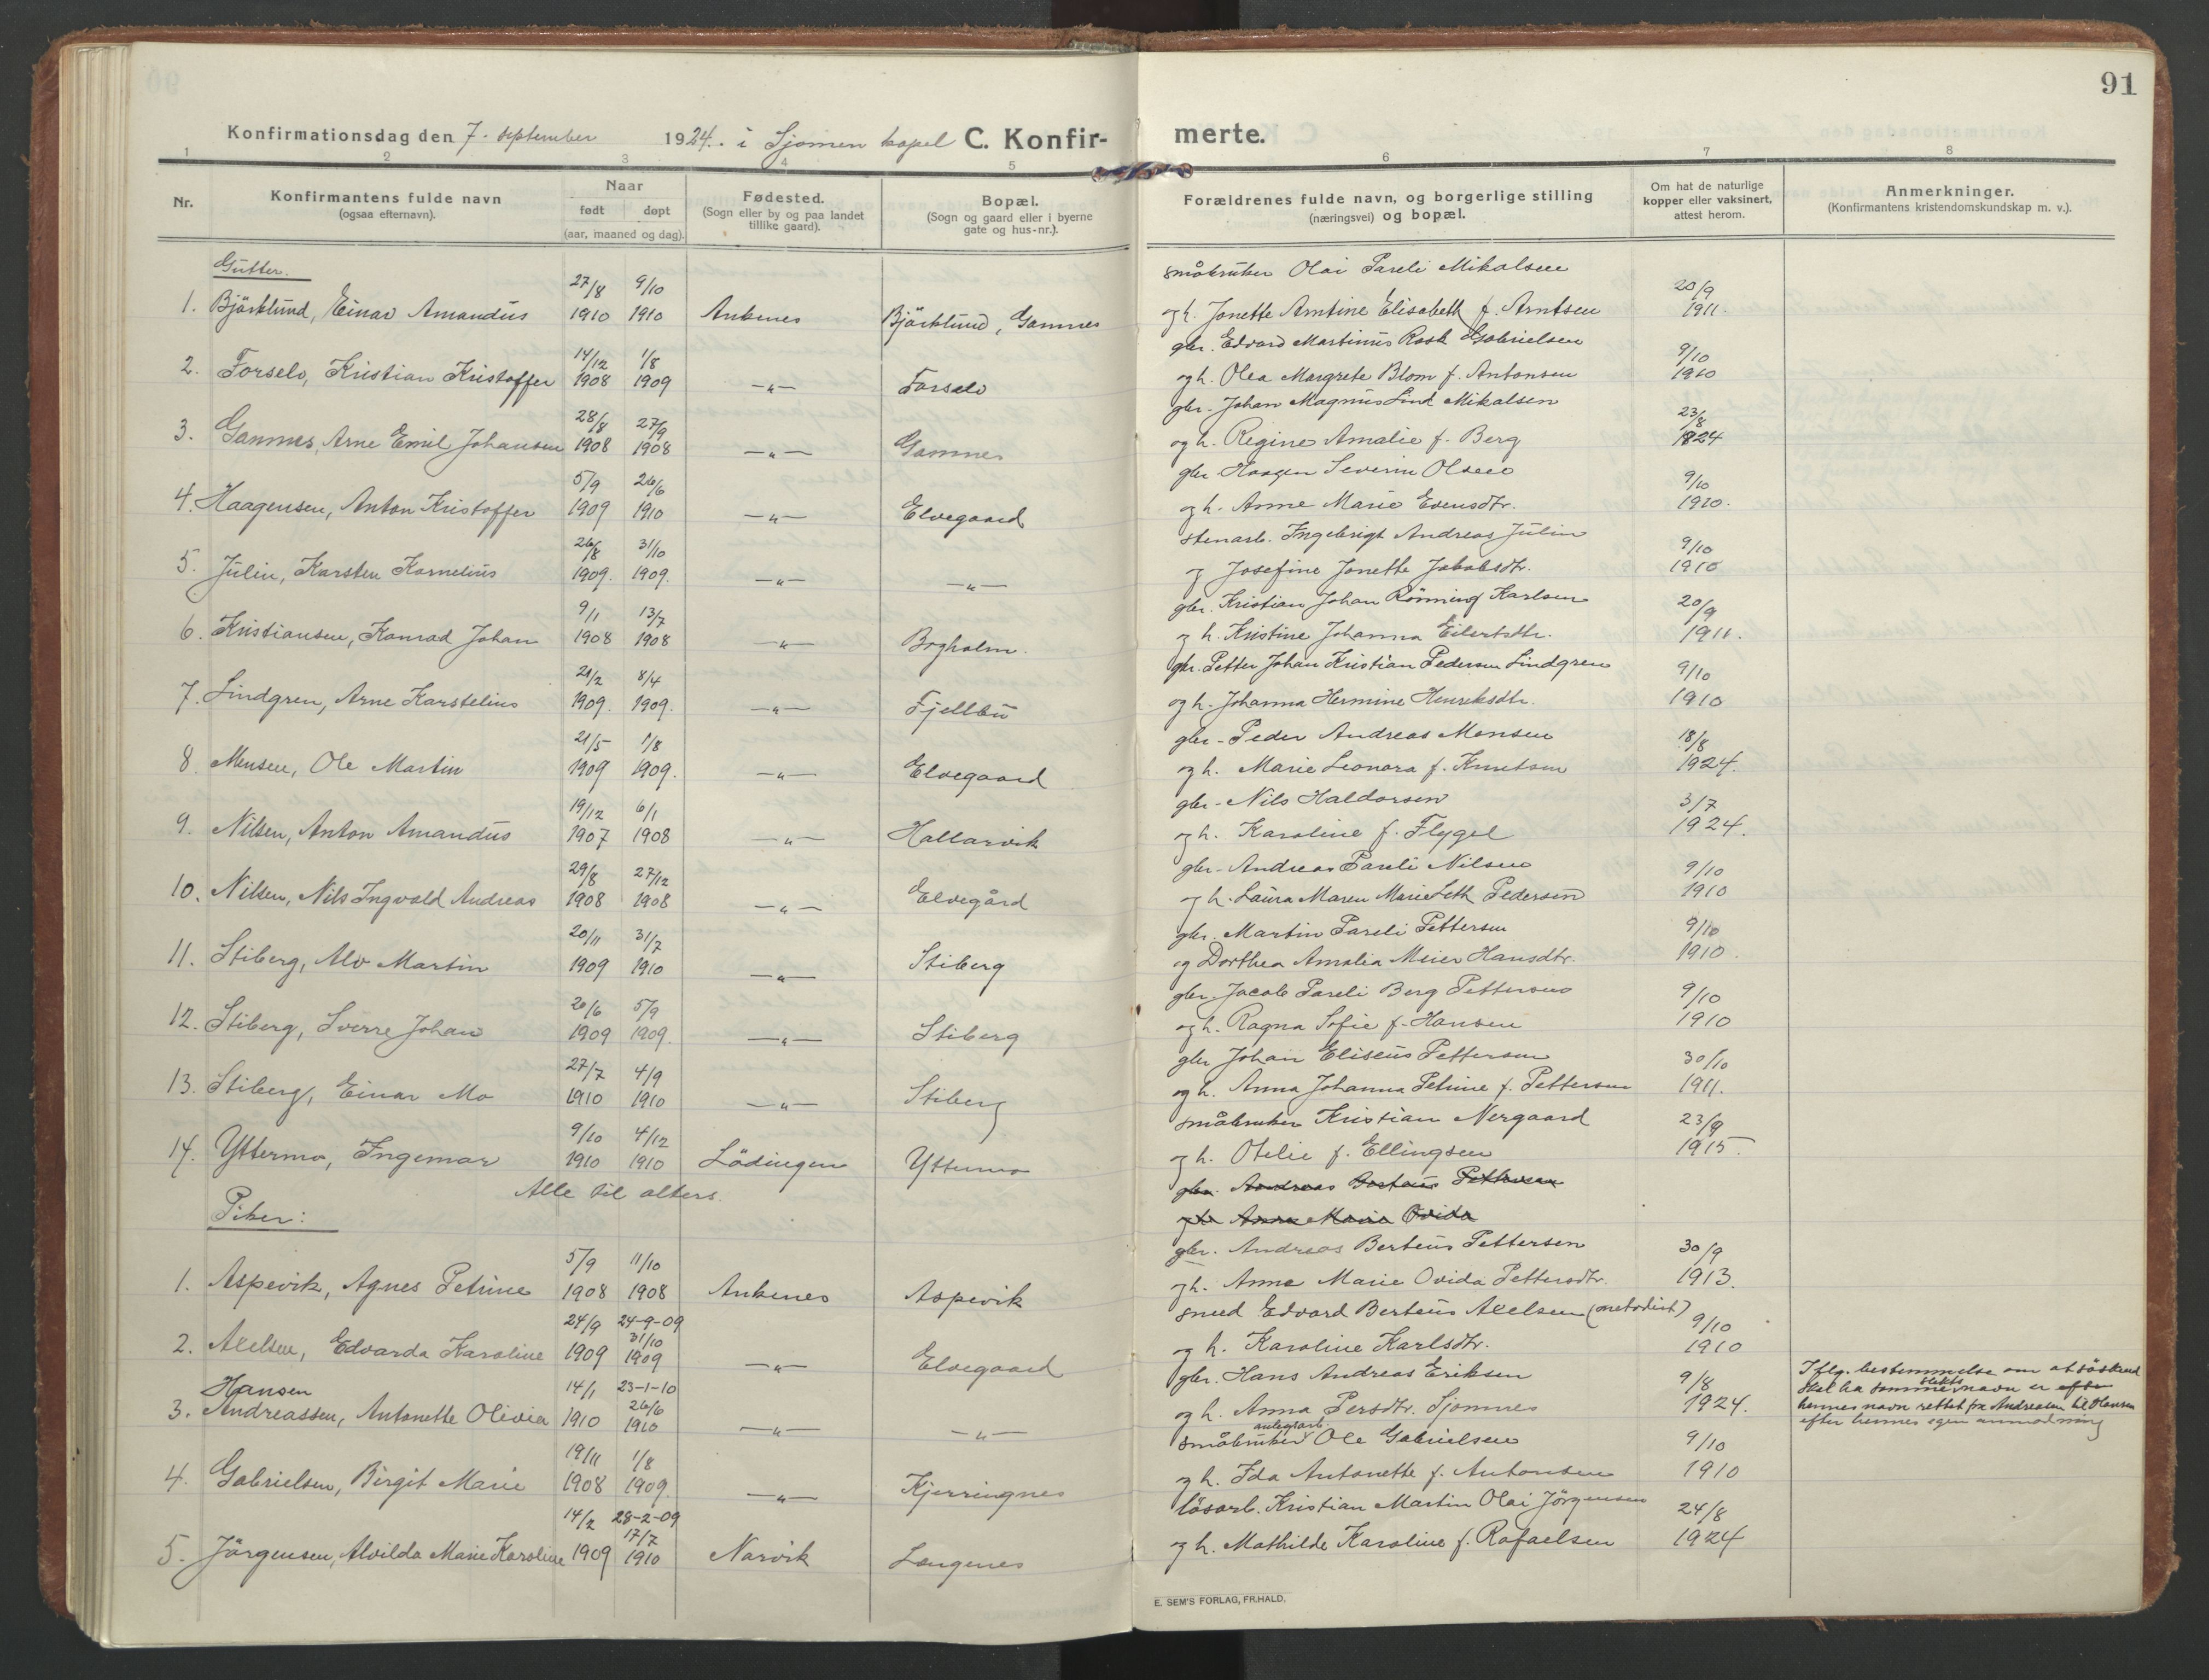 91
Konfirmationsdag den 7. september 1924. i Sjomen kapel C. Konfir- merte.
1 2 3 4 5 6 7 8
Nr.
Konfirmantens fulde navn
(ogsaa efternavn).
Naar
født døpt
(aar, maaned og dag).
Fødested.
(Sogn eller by og paa landet
tillike gaard).
Bopæl.
(Sogn og gaard eller i byerne
gate og hus-nr.).
Forældrenes fulde navn, og borgerlige stilling
(næringsvei) og bopæl.
Om hat de naturlige
kopper eller vaksinert,
attest herom.
Anmerkninger.
(Konfirmantens kristendomskundskap m. v.).
Gutter.
27/8 9/10 småbruker Olai Pareli Mikalsen 20/9
1. Björklund, Einar Amandus 1910 1910 Ankenes Björklund, Gamnes og h. Jonette Amtine Elisabeth f. Arntsen 1911.
14/12 1/8 gbr. Edvard Martinus Rask Gabrielsen 9/10
2. Forselv, Kristian Kristoffer 1908 1909 —"— Forselv og h. Olea Margrete Blom f. Antonsen 1910
28/8 27/9 gbr. Johan Magnus Lind Mikalsen 23/8
3. Gamnes, Arne Emil Johansen 1908 1908 —"— Gamnes og h. Regine Amalie f. Berg 1924
5/9 26/6 gbr. Haagen Severin Olsen 9/10
4. Haagensen, Anton Kristoffer 1909 1910 —"— Elvegaard og h. Anne Marie Evensdtr. 1910.
26/8 31/10 stenarb. Ingebrigt Andreas Julin 9/10
5. Julin, Karsten Kornelius 1909. 1909. —"— —"— og Josefine Jonette Jakobsdtr. 1910
9/1 13/7 gbr. Kristian Johan Rönning Karlsen 20/9
6. Kristiansen, Konrad Johan 1908 1908 —"— Borgholm. og h. Kristine Johanna Eilertsdtr. 1911.
21/2 8/4 gbr. Petter Johan Kristian Pedersen Lindgren 9/10
7. Lindgren, Arne Karstelius 1909. 1909. —"— Fjellbu og h. Johanna Hermine Henriksdtr. 1910
21/5 1/8 gbr. Peder Andreas Monsen 18/8
8. Monsen, Ole Martin 1909 1909. —"— Elvegaard og h. Marie Leonora f. Knutsen 1924.
19/12 6/1 gbr. Nils Haldorsen 3/7
9. Nilsen, Anton Amandus 1907 1908 —"— Hallarvik og h. Karoline f. Flygel 1924.
29/8 27/12 gbr. Andreas Pareli Nilsen 9/10
10. Nilsen, Nils Ingvald Andreas 1908 1908 —"— Elvegård og h. Laura Maren Marie Leth Pedersen 1910
20/11 31/7 gbr. Martin Pareli Pettersen 9/10
11. Stiberg, Alv Martin 1909 1910 —"— Stiberg og Dorthea Amalia Meier Hansdtr. 1910.
20/6 5/9 gbr. Jacob Pareli Berg Pettersen 9/10
12. Stiberg, Sverre Johan 1909 1909. —"— Stiberg og h. Ragna Sofie f. Hansen 1910
27/7 4/9 gbr Johan Eliseus Pettersen 30/10
13. Stiberg, Einar Mo 1910 1910 —"— Stiberg og h. Anna Johanna Petrine f. Pettersen 1911.
9/10 4/12 småbruker Kristian Nergaard 23/9
14. Yttermo, Ingemar 1910 1910 Lödingen Yttermo og h. Otelie f. Ellingsen 1915.
Alle til alters.
gbr. Andreas Berteus Pettersen
Piker:
og h. Anne Marie Ovida
5/9 11/10 gbr. Andreas Berteus Pettersen 30/9
1. Aspevik, Agnes Petrine 1908 1908 Ankenes Aspevik og h. Anne Marie Ovida Pettersdtr. 1913.
24/9 24-9-09 31/10 smed Edvard Berteus Axelsen (metodist) 9/10
2. Axelsen, Edvarda Karoline 1909 1909 —"— Elvegaard og h. Karoline Karlsdtr. 1910
Hansen 14/1 23-1-10 26/6 gbr. Hans Andreas Eriksen 9/8
3. Andreassen, Antonette Olivia 1910 1910 —"— —"— og h. Anna Persdtr. Sjomnes 1924.
Iflg. bestemmelse om at söskend
skal ha samme slekts navn er efter
hennes navn rettet fra Andreasen til Hansen
efter hennes egen anmodning
19/11 1/8 småbruker anlegsarb. Ole Gabrielsen 9/10
4. Gabrielsen, Birgit Marie 1908 1909. —"— Kjerringnes og h. Ida Antonette f. Antonsen 1910
14/2 28-2-09 17/7 lösarb. Kristian Martin Olai Jörgensen 24/8
5. Jörgensen, Alvilda Marie Karoline 1909 1910 Narvik Langenes og h. Mathilde Karoline f. Rafaelsen 1924
E. SEM'S FORLAG, FR.HALD.